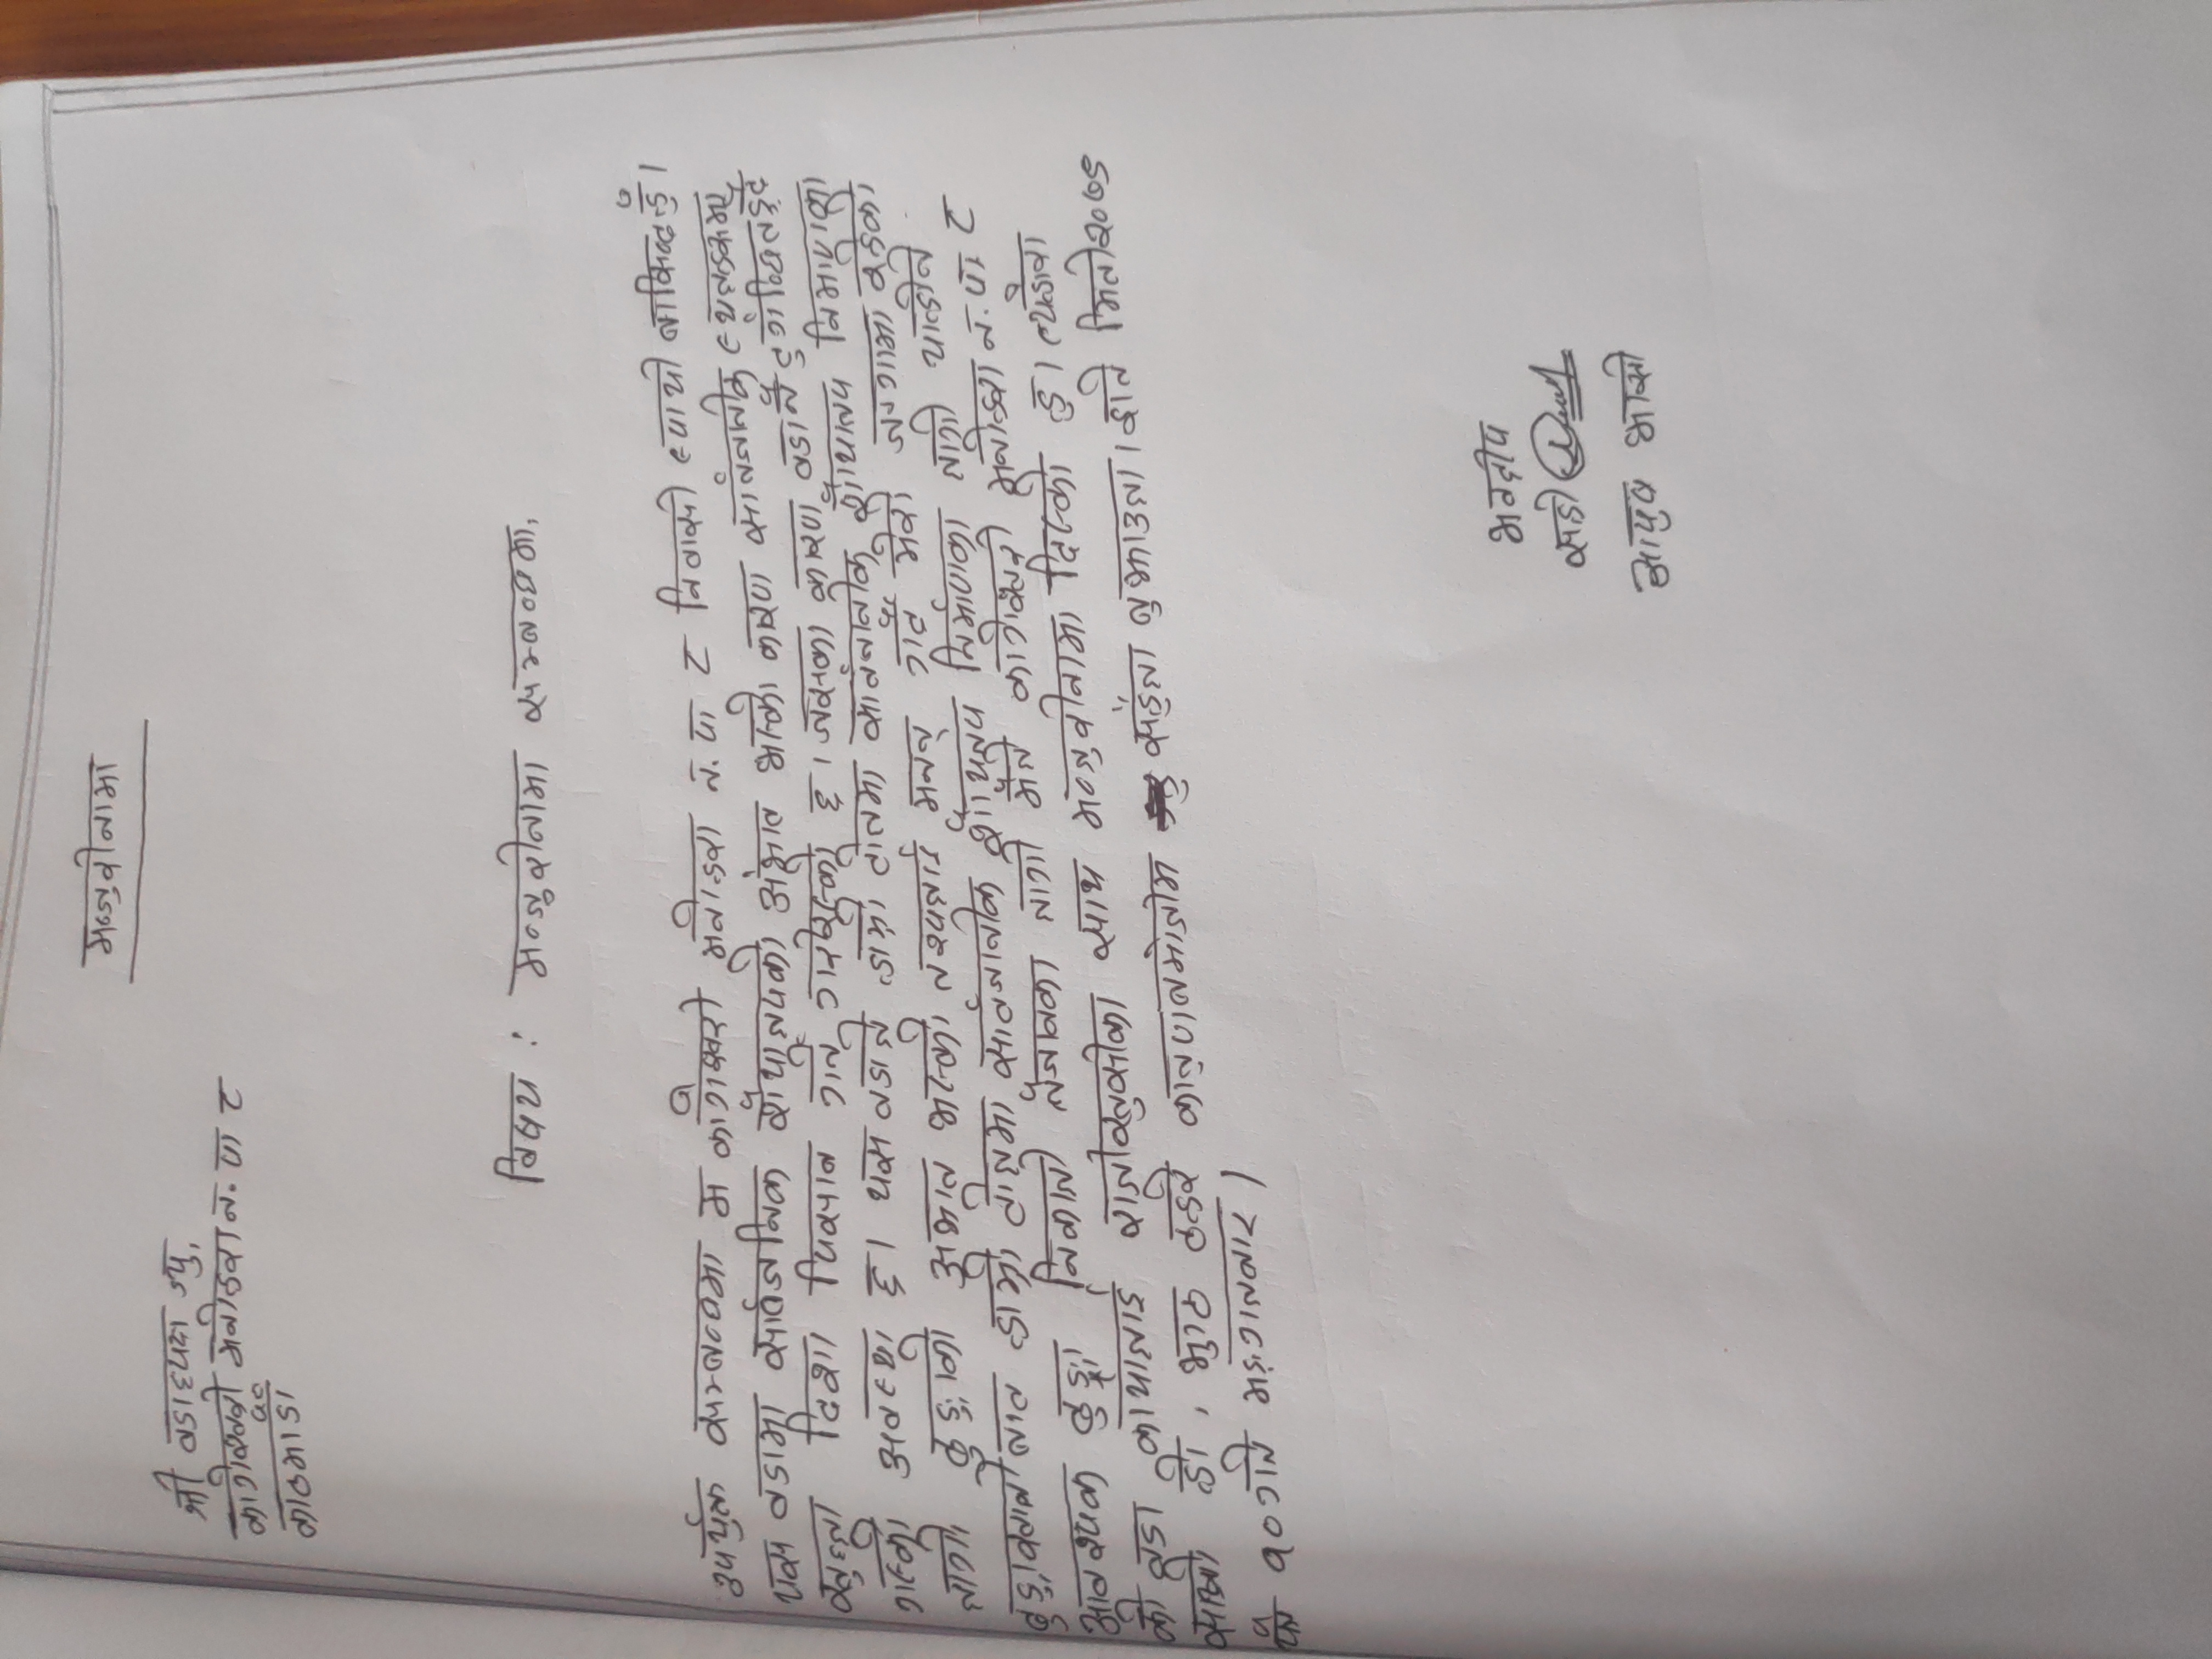 मञ्जुरीनामा
श्री वडाध्यक्ष ज्यु,
कागेश्वरी मनोहरा न. पा ८
काठमाडौँ
विषय : मन्जुरीनामा सम्बन्धमा,
उपर्युक्त सम्बन्धमा म कागेश्वरी मनोहरा न. पा ८ निवासी स्थायी बासिन्दा हुँ।
यस वडामा सार्वजनिक शौचालयको अभाव भएको कारण सार्वजानीक स्थलहरूमा
खुल्ला दिशा पिसाव गर्ने गरिएको छ। जसका कारण वडानै दुर्गन्धित हुदै
गएको अवस्था छ। यस वडाले हाम्रो टोलमा सार्वजानीक शौचालय निमाणका
लागी ढुङ्गाको अभाव भएको तथ्यलाई मनन् गर्दै मेरो जग्गामा रहेको
ढुङ्गाखानी बाट हाम्रो टोलमा सार्वजानीक शौचालय निर्माणका लागी चाहीने
आवश्यक ढुङ्गा निकाली लैजानका लागी मैले कागेश्वरी मनोहरा न. पा. ८
को वडा कार्यालाई राजीखुसीका साथ मन्जुरीनामा दिएको छु। व्यहोरा
साचो हो, झुठ ठहरे कानुण बमोजीम सहुँला बुझाउला। ईति मिती २०७९
१० गते मङ्गलबार।
भवदीय
सही
आयुष